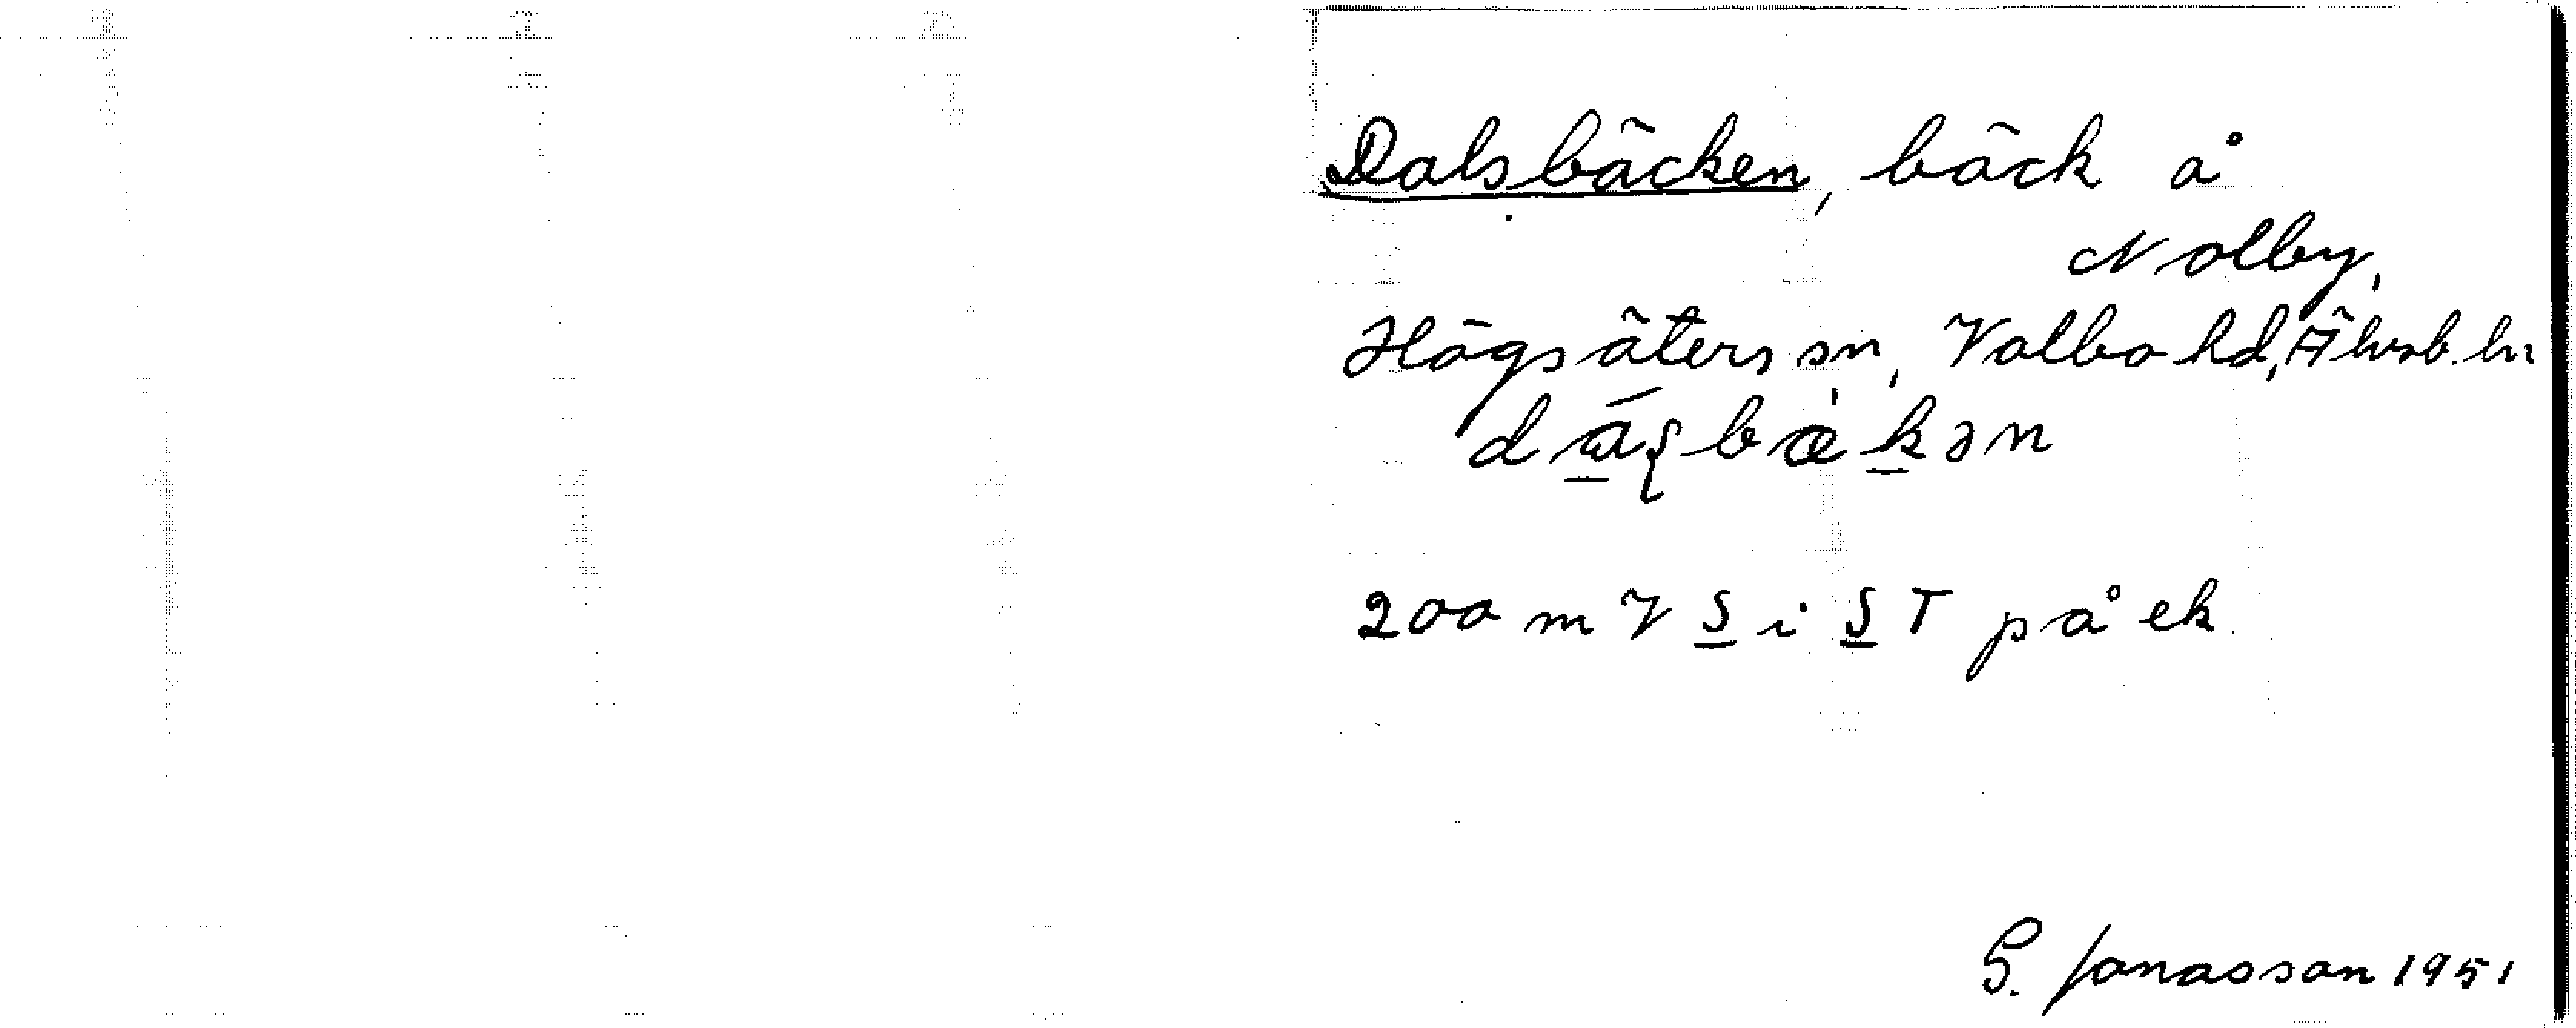 Dalsbäcken, bäck å
Nolby,
Högsäters sn, Valbo hd, Älvsb. ln
200 m V S i S T på ek.
G. Jonasson 1951